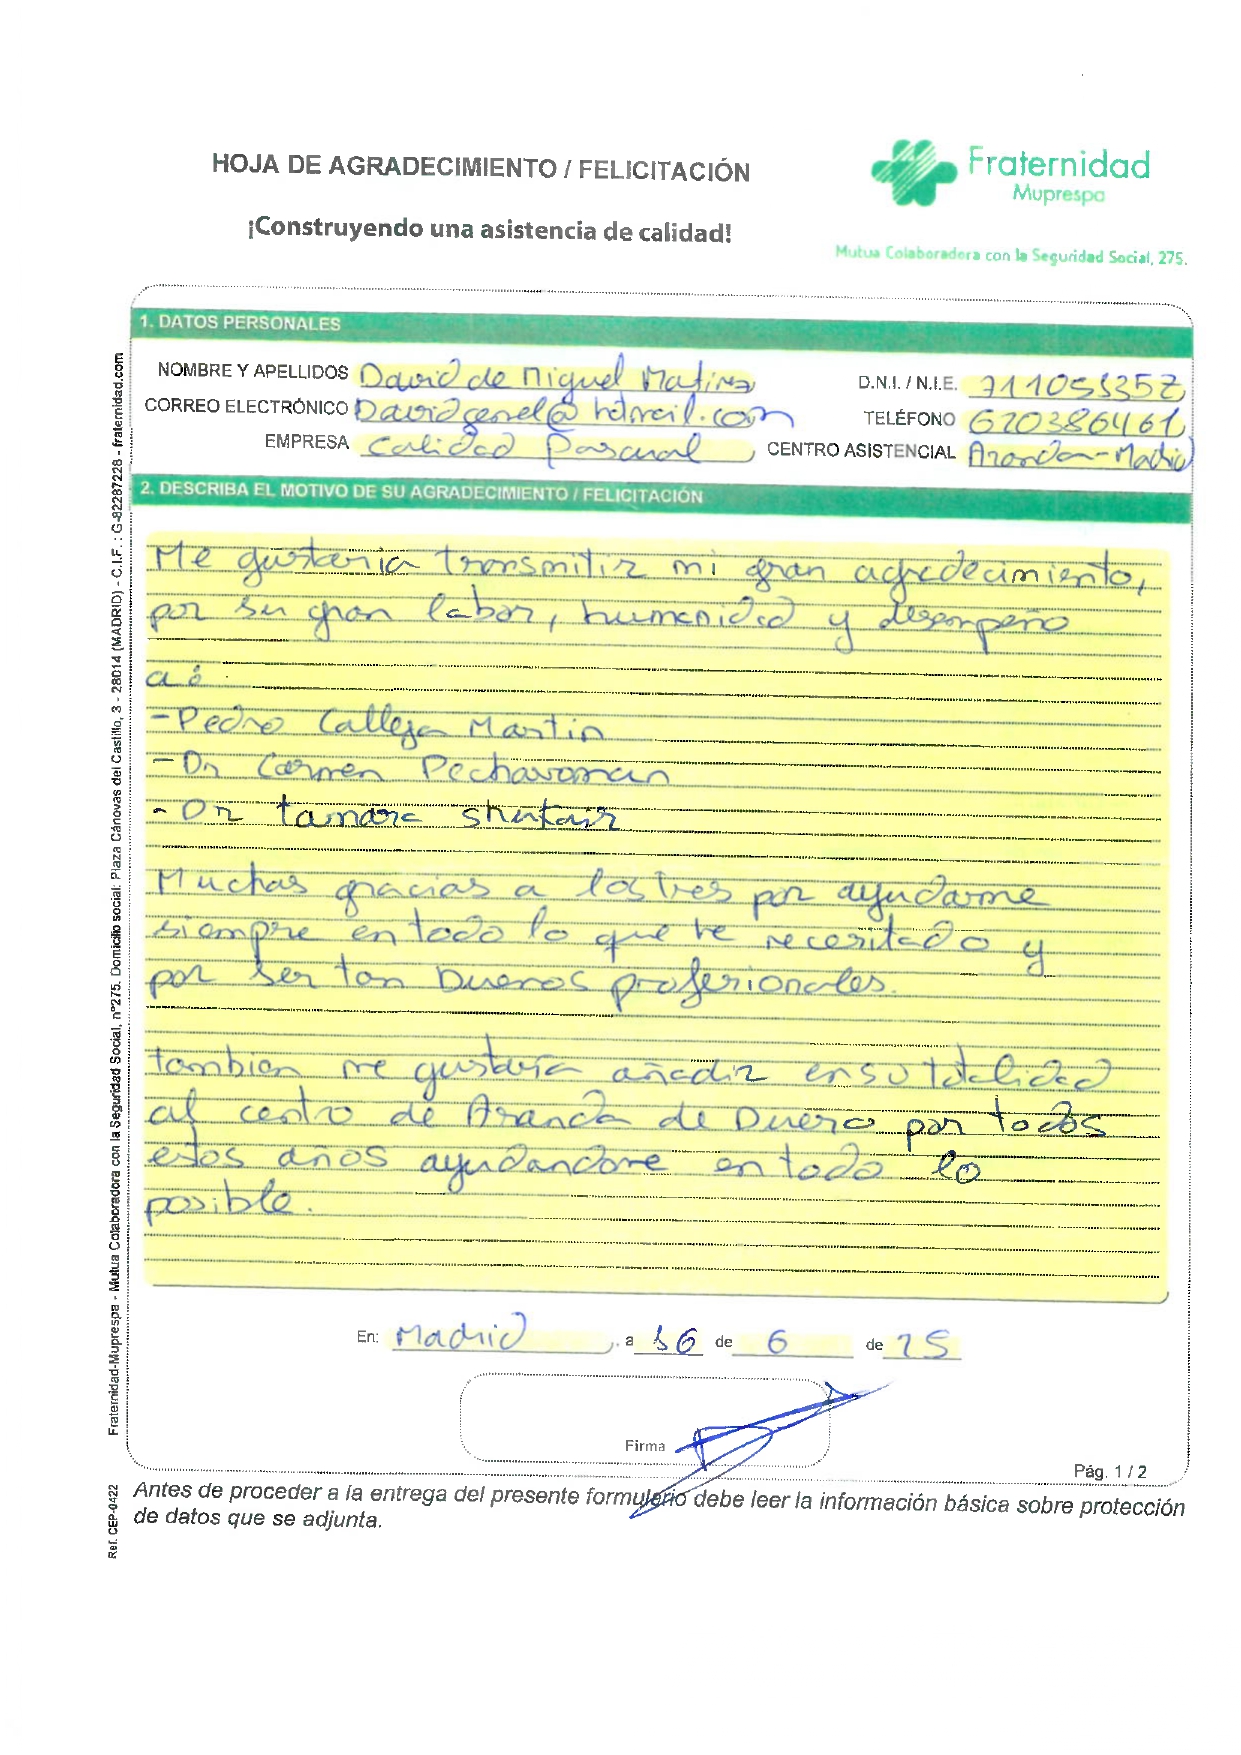 HOJA DE AGRADECIMIENTO / FELICITACIÓN
¡Construyendo una asistencia de calidad!
Fraternidad
Muprespa
Mutua Colaboradora con la Seguridad Social, 275.
1. DATOS PERSONALES
NOMBRE Y APELLIDOS David de Miguel
D.N.I. / N.I.E. 71105535Z
CORREO ELECTRÓNICO
TELÉFONO 620386461
EMPRESA Calidad Pascual
CENTRO ASISTENCIAL Aranda-Madrid
2. DESCRIBA EL MOTIVO DE SU AGRADECIMIENTO / FELICITACIÓN
Me gustaria transmitir mi gran agradecimiento,
por su gran labor, humanidad y desempeño
a :
-Pedro Calleja Martin
-Dr Carmen
-Dr tamara
Muchas gracias a los tres por ayudarme
siempre en todo lo que he necesitado y
por ser tan buenos profesionales.
tambien me gustaria añadir en su totalidad
al centro de Aranda de Duero por todos
estos años ayudandome en todo lo
posible.
En: Madrid, a 16 de 6 de 25
Firma
Pág. 1 / 2
Antes de proceder a la entrega del presente formulario debe leer la información básica sobre protección
de datos que se adjunta.
Fraternidad-Muprespa - Mutua Colaboradora con la Seguridad Social, nº275. Domicilio social: Plaza Cánovas del Castillo, 3 - 28014 (MADRID) - C.I.F. : G-82287228 - fraternidad.com
Ref. CEP-0422